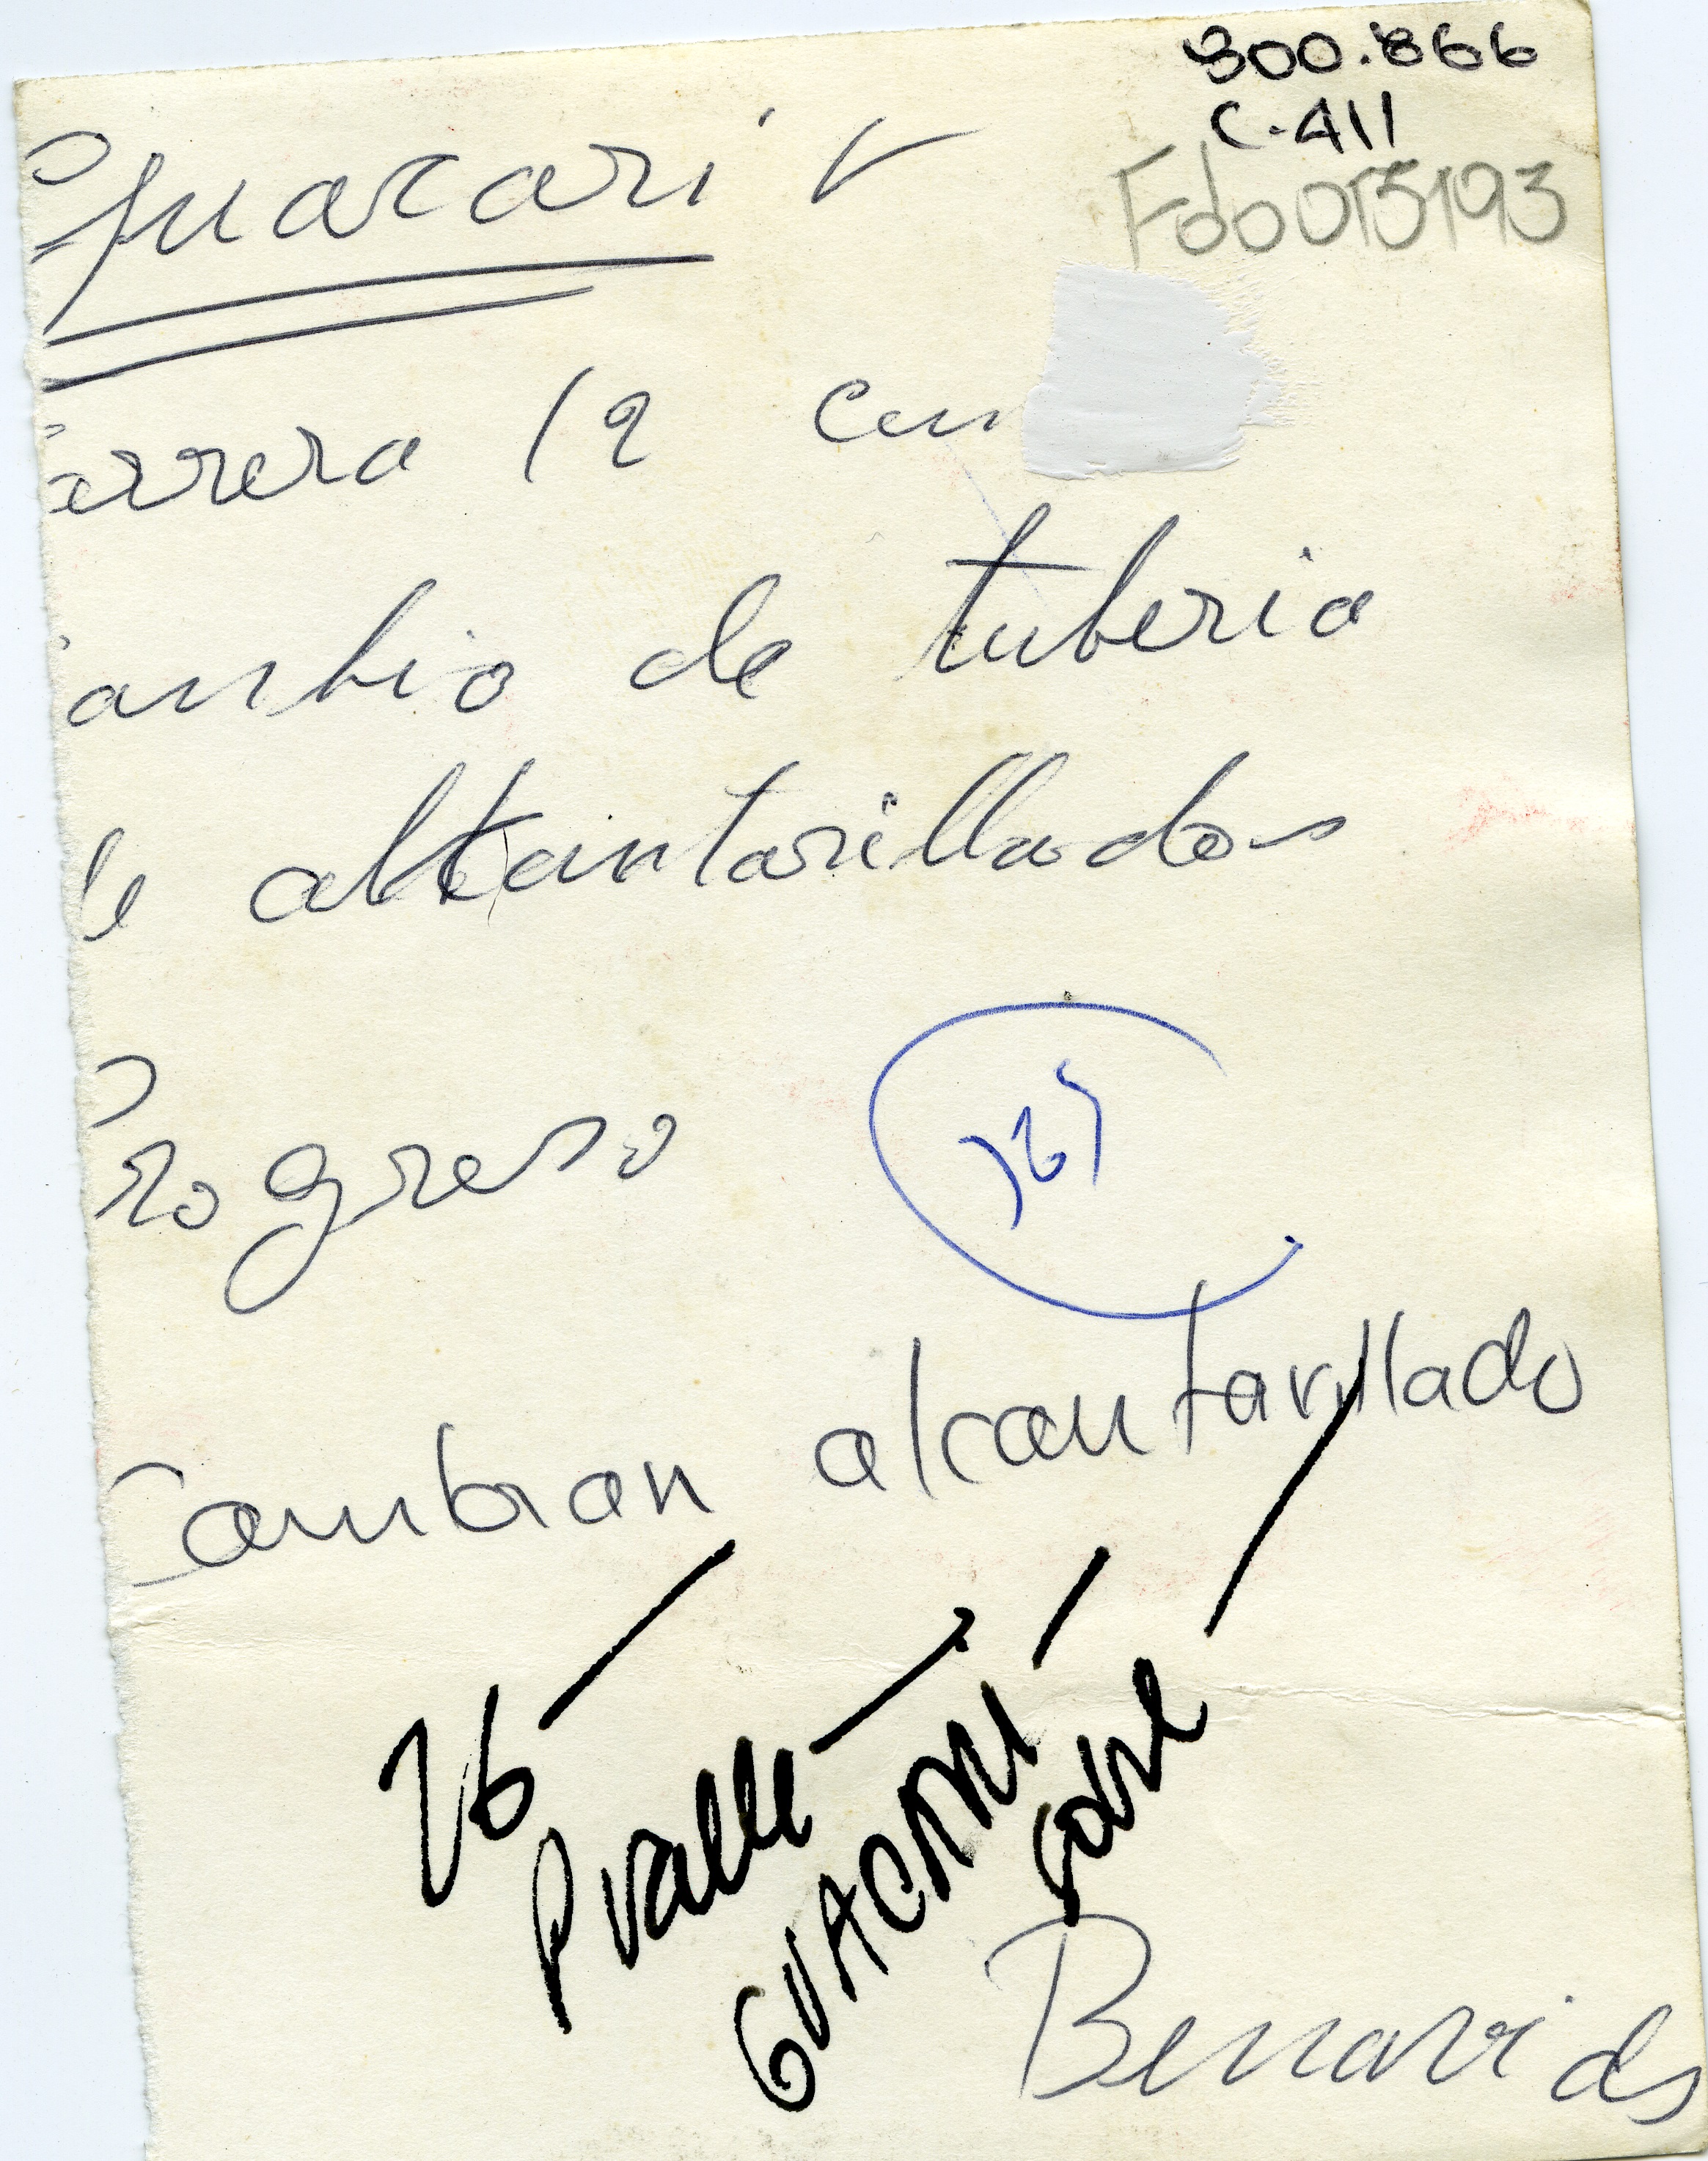 300.866
C-411
Fdo 015193
Guacari
arrera 12 con
ambio de tuberia
de alcantarillados
Progreso
Cambian alcantarillado
26
P valle
GUACARI
Benavides